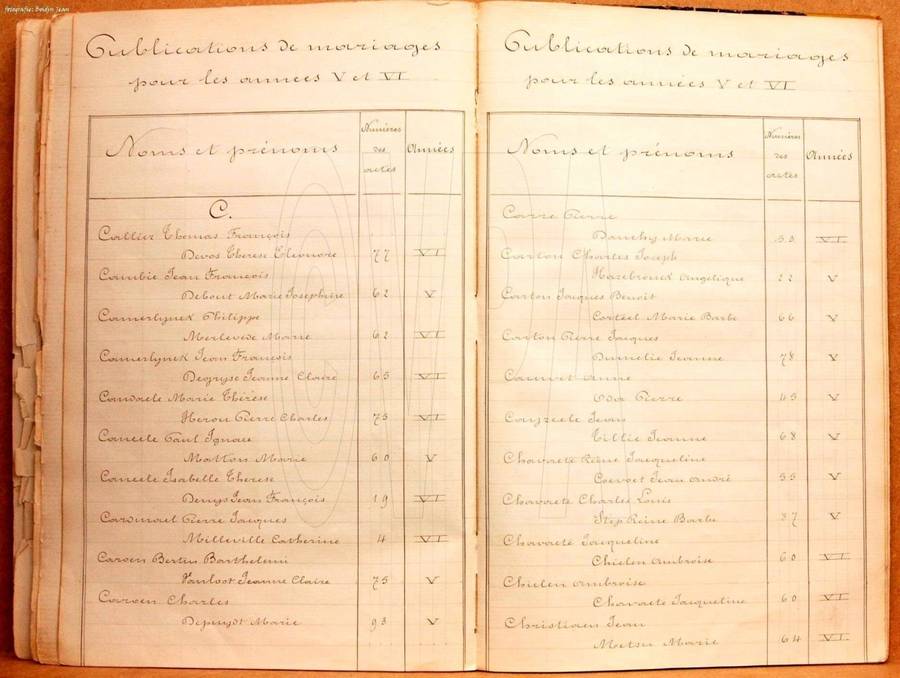 fotografie: Boidin Jean
Publications de mariages
pour les années V et VI
Noms et prénoms
Numéros
des
actes
Années
C.
Callier Thomas François
Devos Therese Eleonore 77 VI
Cambie Jean François
Debout Marie Josephine 62 V
Camerlynck Philippe
Merlevede Marie 62 VI
Camerlynck Jean François
Degryse Jeanne Claire 65 VI
Candaele Marie Thérèse
Herou Pierre Charles 75 VI
Caneele Paul Ignace
Matton Marie 60 V
Caneele Isabelle Therese
Denys Jean François 19 VI
Cardinael Pierre Jacques
Milleville Catherine 4 VI
Caroen Bertin Barthelemi
Vanloot Jeanne Claire 75 V
Caroen Charles
Depuydt Marie 93 V
Publications de mariages
pour les années V et VI
Noms et prénoms
Numéros
des
actes
Années
Carre Pierre
Dauchy Marie 50 VI
Carton Charles Joseph
Hazebrouck Angelique 22 V
Carton Jacques Benoit
Corteel Marie Barbe 66 V
Carton Pierre Jacques
Dumelie Jeanne 78 V
Cauvet Anne
Pierre 45 V
Jean
Tillie Jeanne 68 V
Chavaete Reine Jacqueline
Coevoet Jean André 55 V
Chavaete Charles Louis
Stop Reine Barbe 37 V
Chavaete Jacqueline
Chielen Ambroise 60 VI
Chielen Ambroise
Chavaete Jacqueline 60 VI
Christiaen Jean
Metsu Marie 64 VI